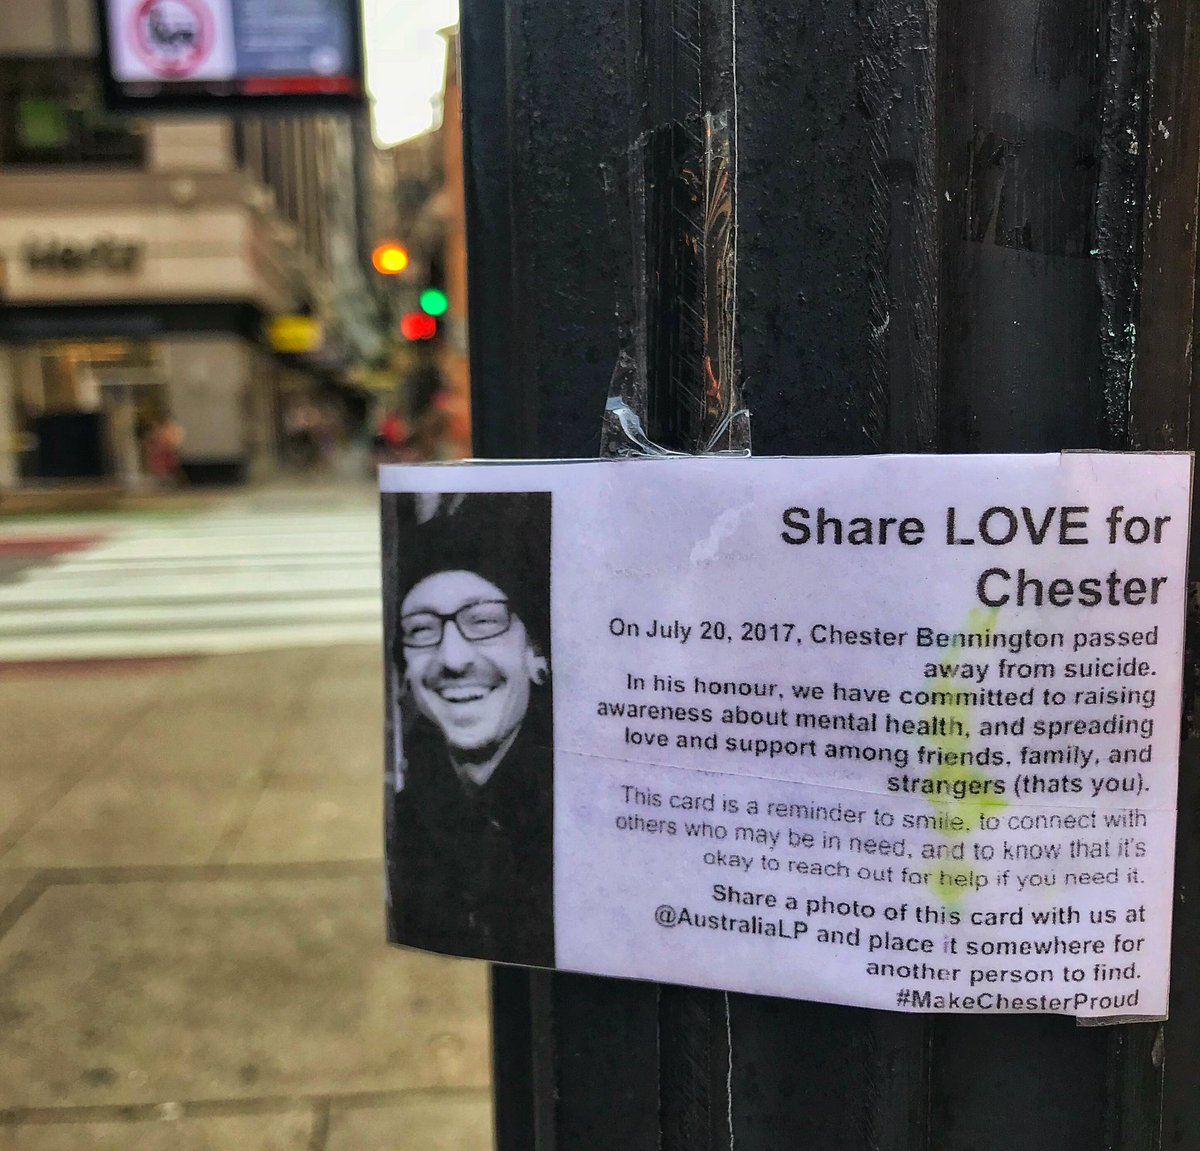 Hertz
Share LOVE for
Chester
On July 20, 2017, Chester Bennington passed
away from suicide.
In his honour, we have committed to raising
awareness about mental health, and spreading
love and support among friends, family, and
strangers (thats you).
This card is a reminder to smile, to connect with
others who may be in need, and to know that it's
okay to reach out for help if you need it.
Share a photo of this card with us at
@AustraliaLP and place it somewhere for
another person to find.
#MakeChesterProud